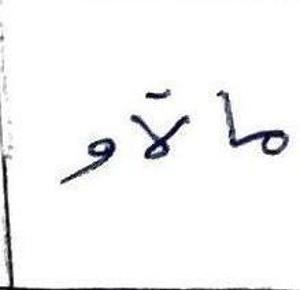 مالآو